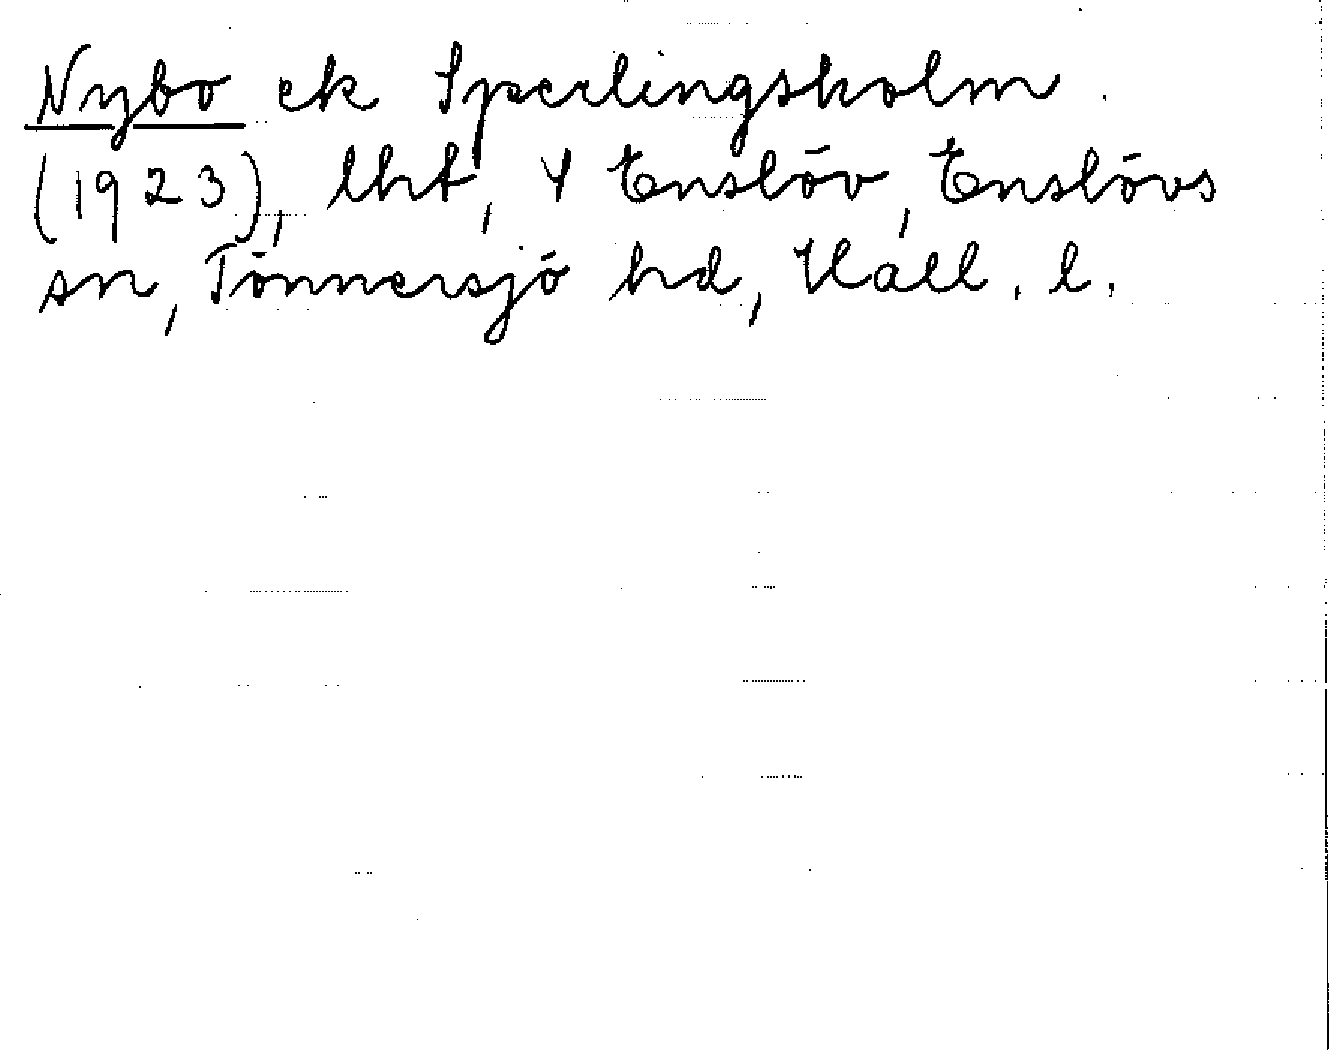 Nybo ek Sperlingsholm
(1923), lht, Y Enslöv, Enslövs
sn, Tönnersjö hd, Hall. l.